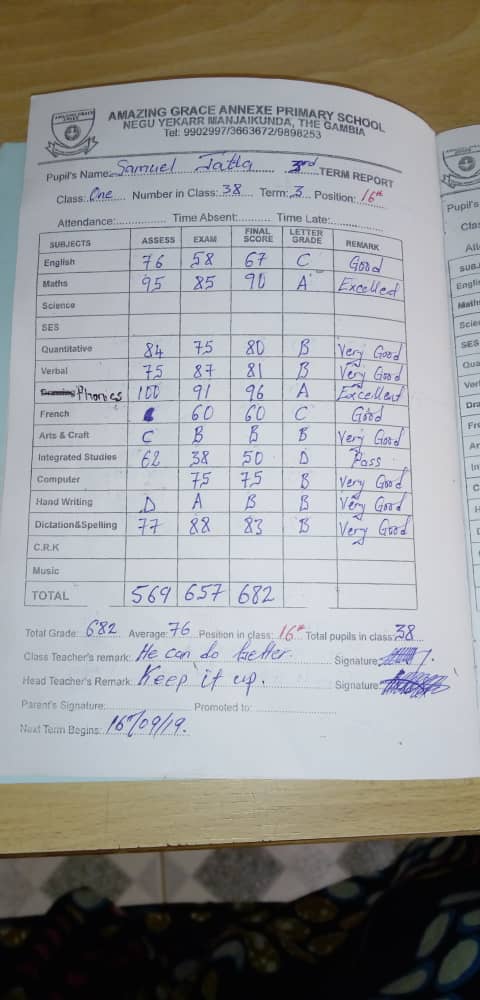 AMAZING GRACE ANNEXE PRIMARY SCHOOL
NEGU YEKARR MANJAIKUNDA, THE GAMBIA
Tel: 9902997/3663672/9898253
Pupil's Name: Samuel Jatta 3rd TERM REPORT
Class: One Number in Class: 38 Term: 3 Position: 16th
Attendance: Time Absent: Time Late:
SUBJECTS ASSESS EXAM FINAL SCORE LETTER GRADE REMARK
English 76 58 67 C Good
Maths 95 85 90 A Excellent
Science
SES
Quantitative 84 75 80 B Very Good
Verbal 75 87 81 B Very Good
Phonics 100 91 96 A Excellent
French 60 60 C Good
Arts & Craft C B B B Very Good
Integrated Studies 62 38 50 D Pass
Computer 75 75 B Very Good
Hand Writing D A B B Very Good
Dictation&Spelling 77 88 83 B Very Good
C.R.K
Music
TOTAL 569 657 682
Total Grade: 682 Average: 76 Position in class: 16th Total pupils in class: 38
Class Teacher's remark: He can do better. Signature:
Head Teacher's Remark: Keep it up. Signature:
Parent's Signature: Promoted to:
Next Term Begins: 16th/09/19.
Pupil's
Clas
SUBJ
Englis
Maths
Scie
SES
Qua
Ver
Dra
Fre
Ar
In
C
H